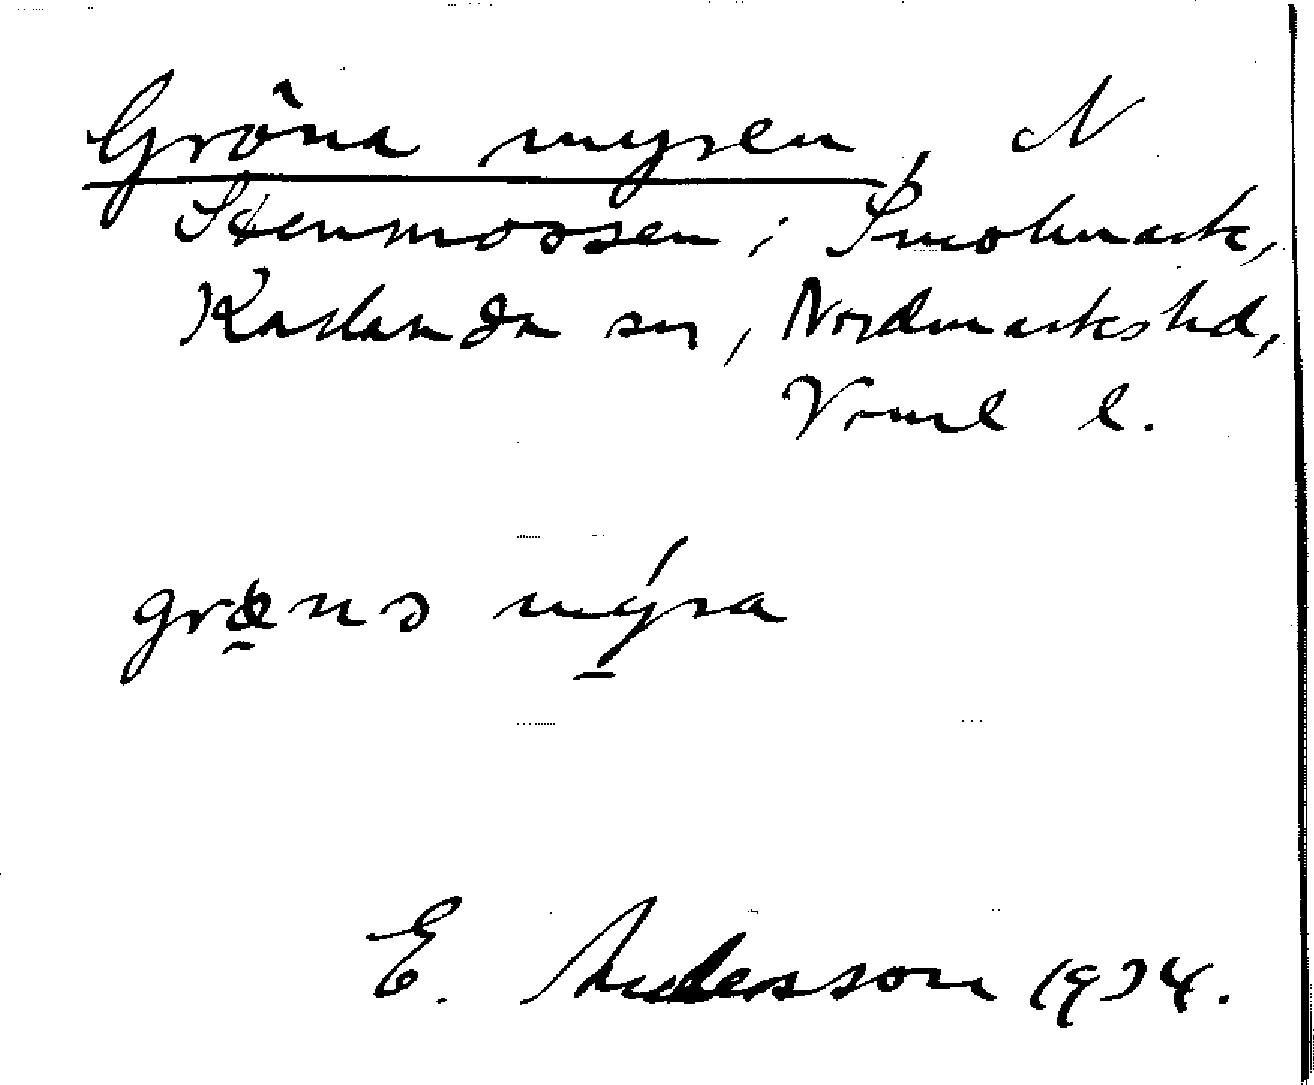 Gröna myren, N
Stenmossen i Smolmark,
Karlanda sn, Nordmarks hd,
Vrml l.
grø̱nə mýra
E. Andersson 1934.